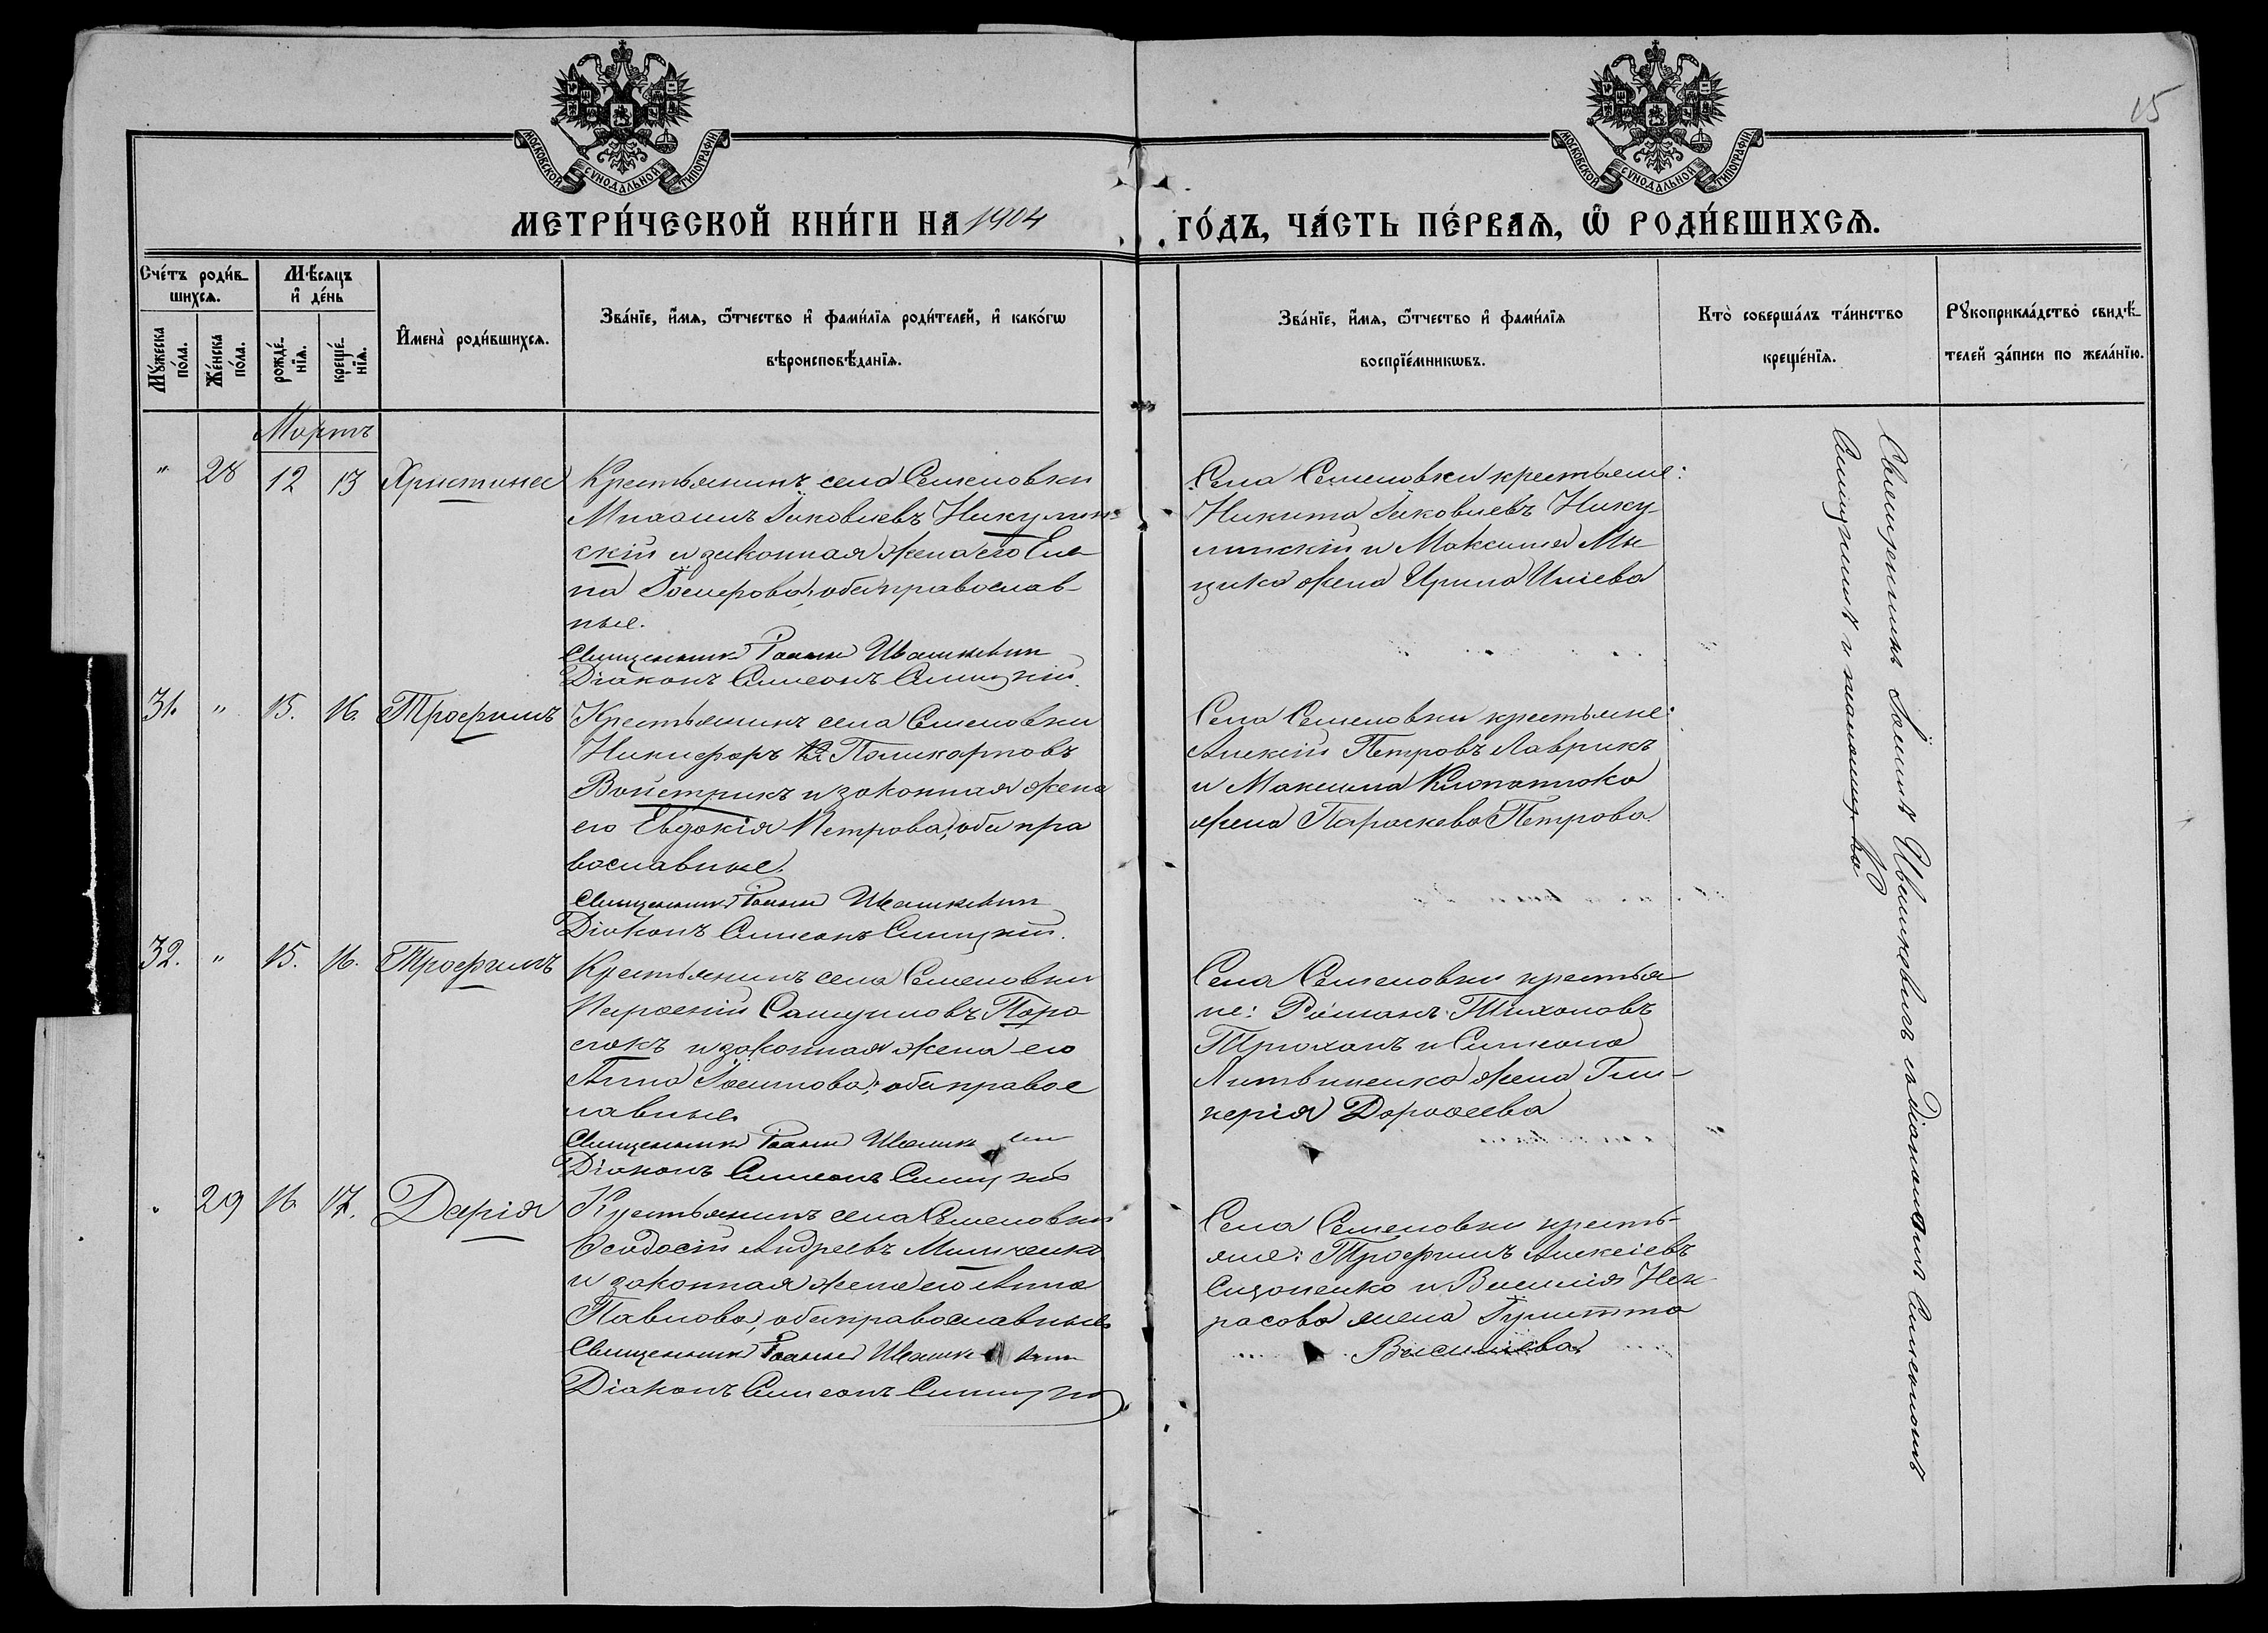 15
МОСКОВСКОЙ СѴНОДАЛЬНОЙ ТИПОГРАФІИ
МОСКОВСКОЙ СѴНОДАЛЬНОЙ ТИПОГРАФІИ
МЕТРИ́ЧЕСКОЙ КНИ́ГИ НА 1904 ГО́ДЪ, ЧА́СТЬ ПЕ́РВАѦ, Ѡ РОДИ́ВШИХСѦ.
Сче́тъ роди́вшихсѧ.
Мꙋ́жеска по́ла.
Же́нска по́ла.
Мѣ́сяцъ и де́нь
рожде́нїѧ.
креще́нїѧ.
Имена̀ роди́вшихсѧ.
Зва́нїе, и́мѧ, ѻ҆́тчество и фами́лїѧ роди́телей, и како́гѡ
вѣроисповѣ́данїѧ.
Зва́нїе, и́мѧ, ѻ҆́тчество и фами́лїѧ
воспрїе́мникѡвъ.
Кто̀ соверша́лъ та́инство
креще́нїѧ.
Рꙋкоприкла́дство свидѣ́-
телей за́писи по жела́нїю.
Мартъ
" 28 12 13 Христина
Крестьянинъ села Семеновки
Миѳаилъ Іаковлевъ Никулин-
скій и законная жена его Еле
на Іосифова, оба православ-
ные.
Священникъ Іоаннъ Ивашкевич
Діаконъ Симеонъ Синицкій.
Села Семеновки крестьяне:
Никита Іаковлевъ Нику-
линскій и Максима Мы
щика жена Ирина Илiева
31. " 15. 16. Трофимъ
Крестьянинъ села Семеновки
Никифоръ Поликарповъ
Войстрикъ и законная жена
его Евдокія Петрова, оба пра
вославные.
Священникъ Іоаннъ Ивашкевич
Діаконъ Симеонъ Синицкій.
Села Семеновки крестьяне:
Алексій Петровъ Лаврикъ
и Максима Клопатюка
жена Параскева Петрова
32. " 15. 16. Трофимъ
Крестьянинъ села Семеновки
Парѳеній Самуиловъ Поро
сюкъ и законная жена его
Анна Іосифова, оба правос
лавные.
Священникъ Іоаннъ
Діаконъ Симеонъ Синицкій
Села Семеновки крестья
не: Романъ Тихоновъ
Трюханъ и Симеона
Литвиненка жена Гли-
керія Дороѳеева
29 16. 17. Дарія
Крестьянинъ села Семеновки
Ѳеодосій Андреевъ Мильченко
и законная жена его Анна
Павлова, оба православные
Священникъ Іоаннъ
Діаконъ Симеонъ Синицкій
Села Семеновки кресть-
яне: Трофимъ Алексіевъ
Сизоненко и Василія Нек-
расова жена Іулитта
Василіева
Священникъ Іоаннъ Ивашкевичъ съ діакономъ Симеономъ
Синицкимъ и псаломщ.